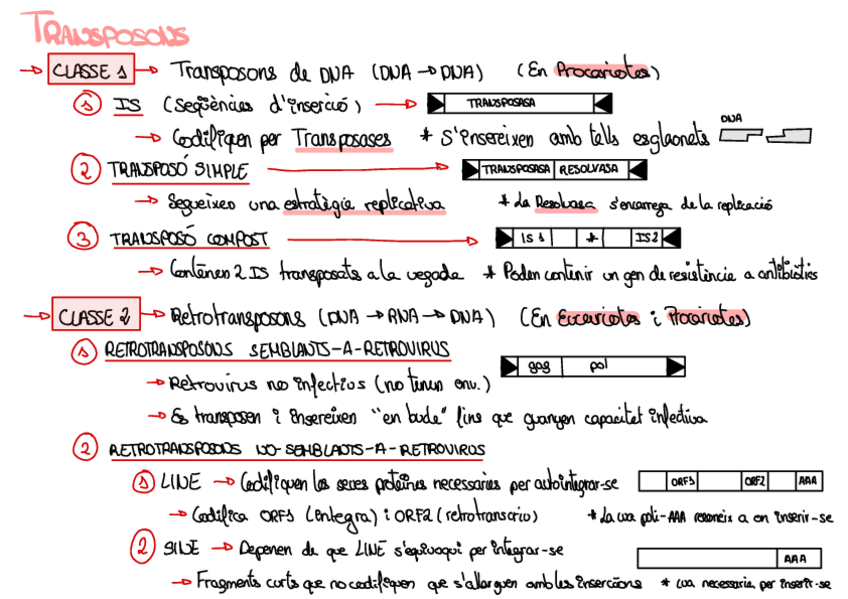 TRANSPOSONS
→ CLASSE 1 → Transposons de DNA (DNA → DNA) (En Procariotes)
1 IS (Seqüències d'inserció) → TRANSPOSASA
→ Codifiquen per Transposases * S'insereixen amb talls esglaonats DNA
2 TRANSPOSÓ SIMPLE → TRANSPOSASA RESOLVASA
→ Segueixen una estratègia replicativa * La Resolvasa s'encarrega de la replicació
3 TRANSPOSÓ COMPOST → IS 1 * IS2
→ Contenen 2 IS transposats a la vegada * Poden contenir un gen de resistència a antibiotics
→ CLASSE 2 → Retrotransposons (DNA → RNA → DNA) (En Eucariotes i Procariotes)
1 RETROTRANSPOSONS SEMBLANTS-A-RETROVIRUS
gag pol
→ Retrovirus no infectius (no tenen env.)
→ Es transposen i insereixen "en bucle" fins que guanyen capacitat infectiva
2 RETROTRANSPOSONS NO-SEMBLANTS-A-RETROVIRUS
1 LINE → Codifiquen les seves proteïnes necessaries per autointegrar-se ORF1 ORF2 AAA
→ Codifica ORF1 (integra) i ORF2 (retrotranscriu) * La cua poli-AAA reconeix a on inserir-se
2 SINE → Depenen de que LINE s'equivoqui per integrar-se AAA
→ Fragments curts que no codifiquen que s'allarguen amb les insercions * cua necessaria per inserir-se